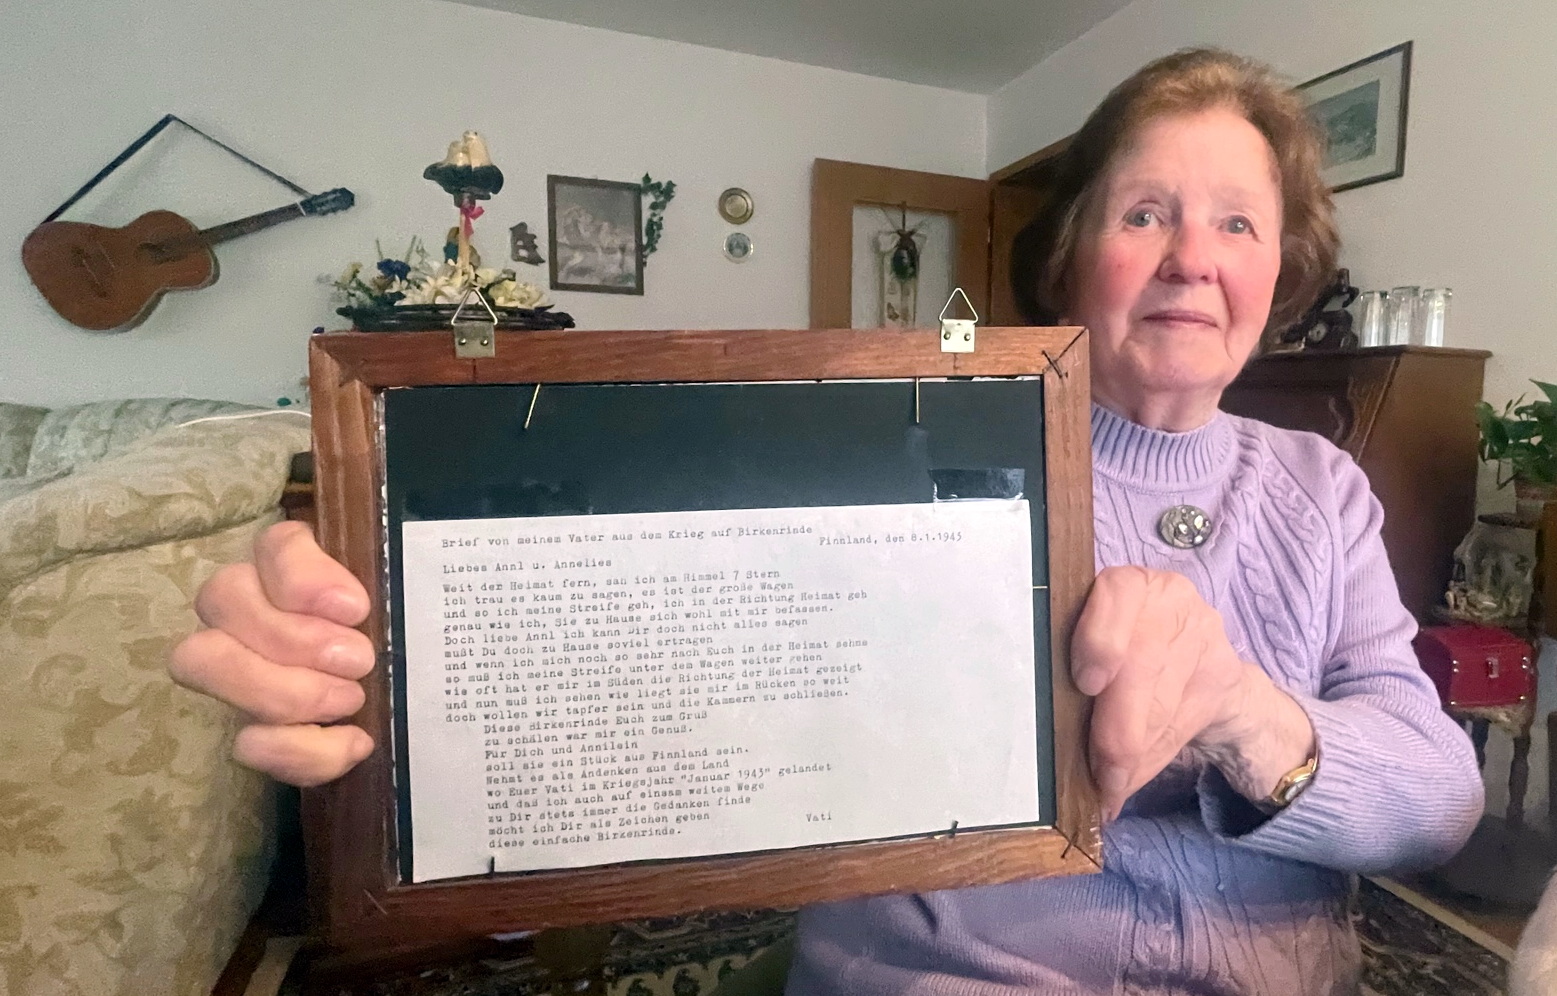 Brief von meinem Vater aus dem Krieg auf Birkenrinde
Finnland, den 8.1.1943
Liebes Annl u. Annelies
Weit der Heimat fern, sah ich am Himmel 7 Stern
ich trau es kaum zu sagen, es ist der große Wagen
und so ich meine Streife geh, ich in der Richtung Heimat geh
genau wie ich, Sie zu Hause sich wohl mit mir befassen.
Doch liebe Annl ich kann Dir doch nicht alles sagen
mußt Du doch zu Hause soviel ertragen
und wenn ich mich noch so sehr nach Euch in der Heimat sehne
so muß ich meine Streife unter dem Wagen weiter gehen
wie oft hat er mir im Süden die Richtung der Heimat gezeigt
und nun muß ich sehen wie liegt sie mir im Rücken so weit
doch wollen wir tapfer sein und die Kammern zu schließen.
Diese Birkenrinde Euch zum Gruß
zu schälen war mir ein Genuß.
Für Dich und Annilein
soll sie ein Stück aus Finnland sein.
Nehmt es als Andenken aus dem Land
wo Euer Vati im Kriegsjahr "Januar 1943" gelandet
und daß ich auch auf einsam weitem Wege
zu Dir stets immer die Gedanken finde
möcht ich Dir als Zeichen geben
diese einfache Birkenrinde.
Vati